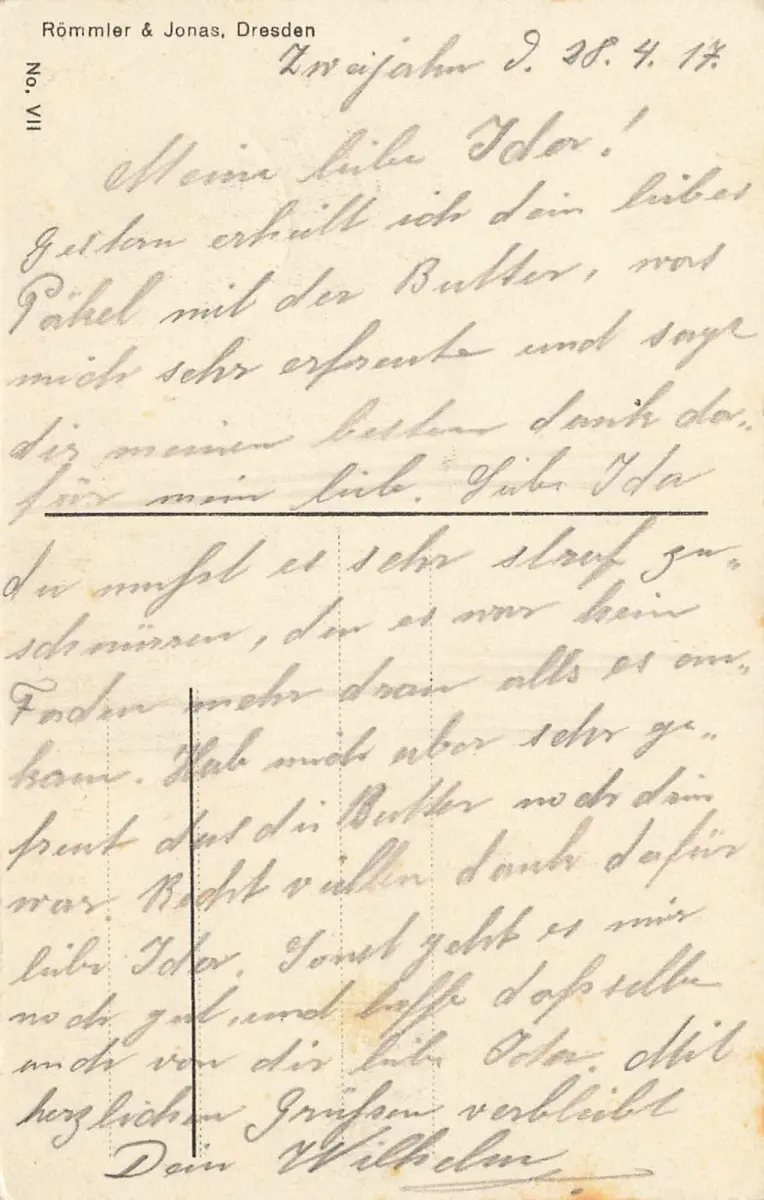 Römmler & Jonas, Dresden
No. VII
Zweijahn d. 28. 4. 17.
Meine liebe Ida!
Gestern erhielt ich dein liebes
Päkel mit der Butter, was
mich sehr erfreute und sage
dir meinen besten dank da„
für mein lieb. Liebe Ida
du mußt es sehr straf zu„
schnürren, den es war kein
Faden mehr dran alls es an„
kam. Hab mich aber sehr ge„
freut das die Butter noch drin
war. Recht villen dank dafür
liebe Ida. Sonst geht es mir
noch gut, und hoffe daßselbe
auch von dir liebe Ida. Mit
herzlichen Grüßen verbleibt
Dein Wilhelm